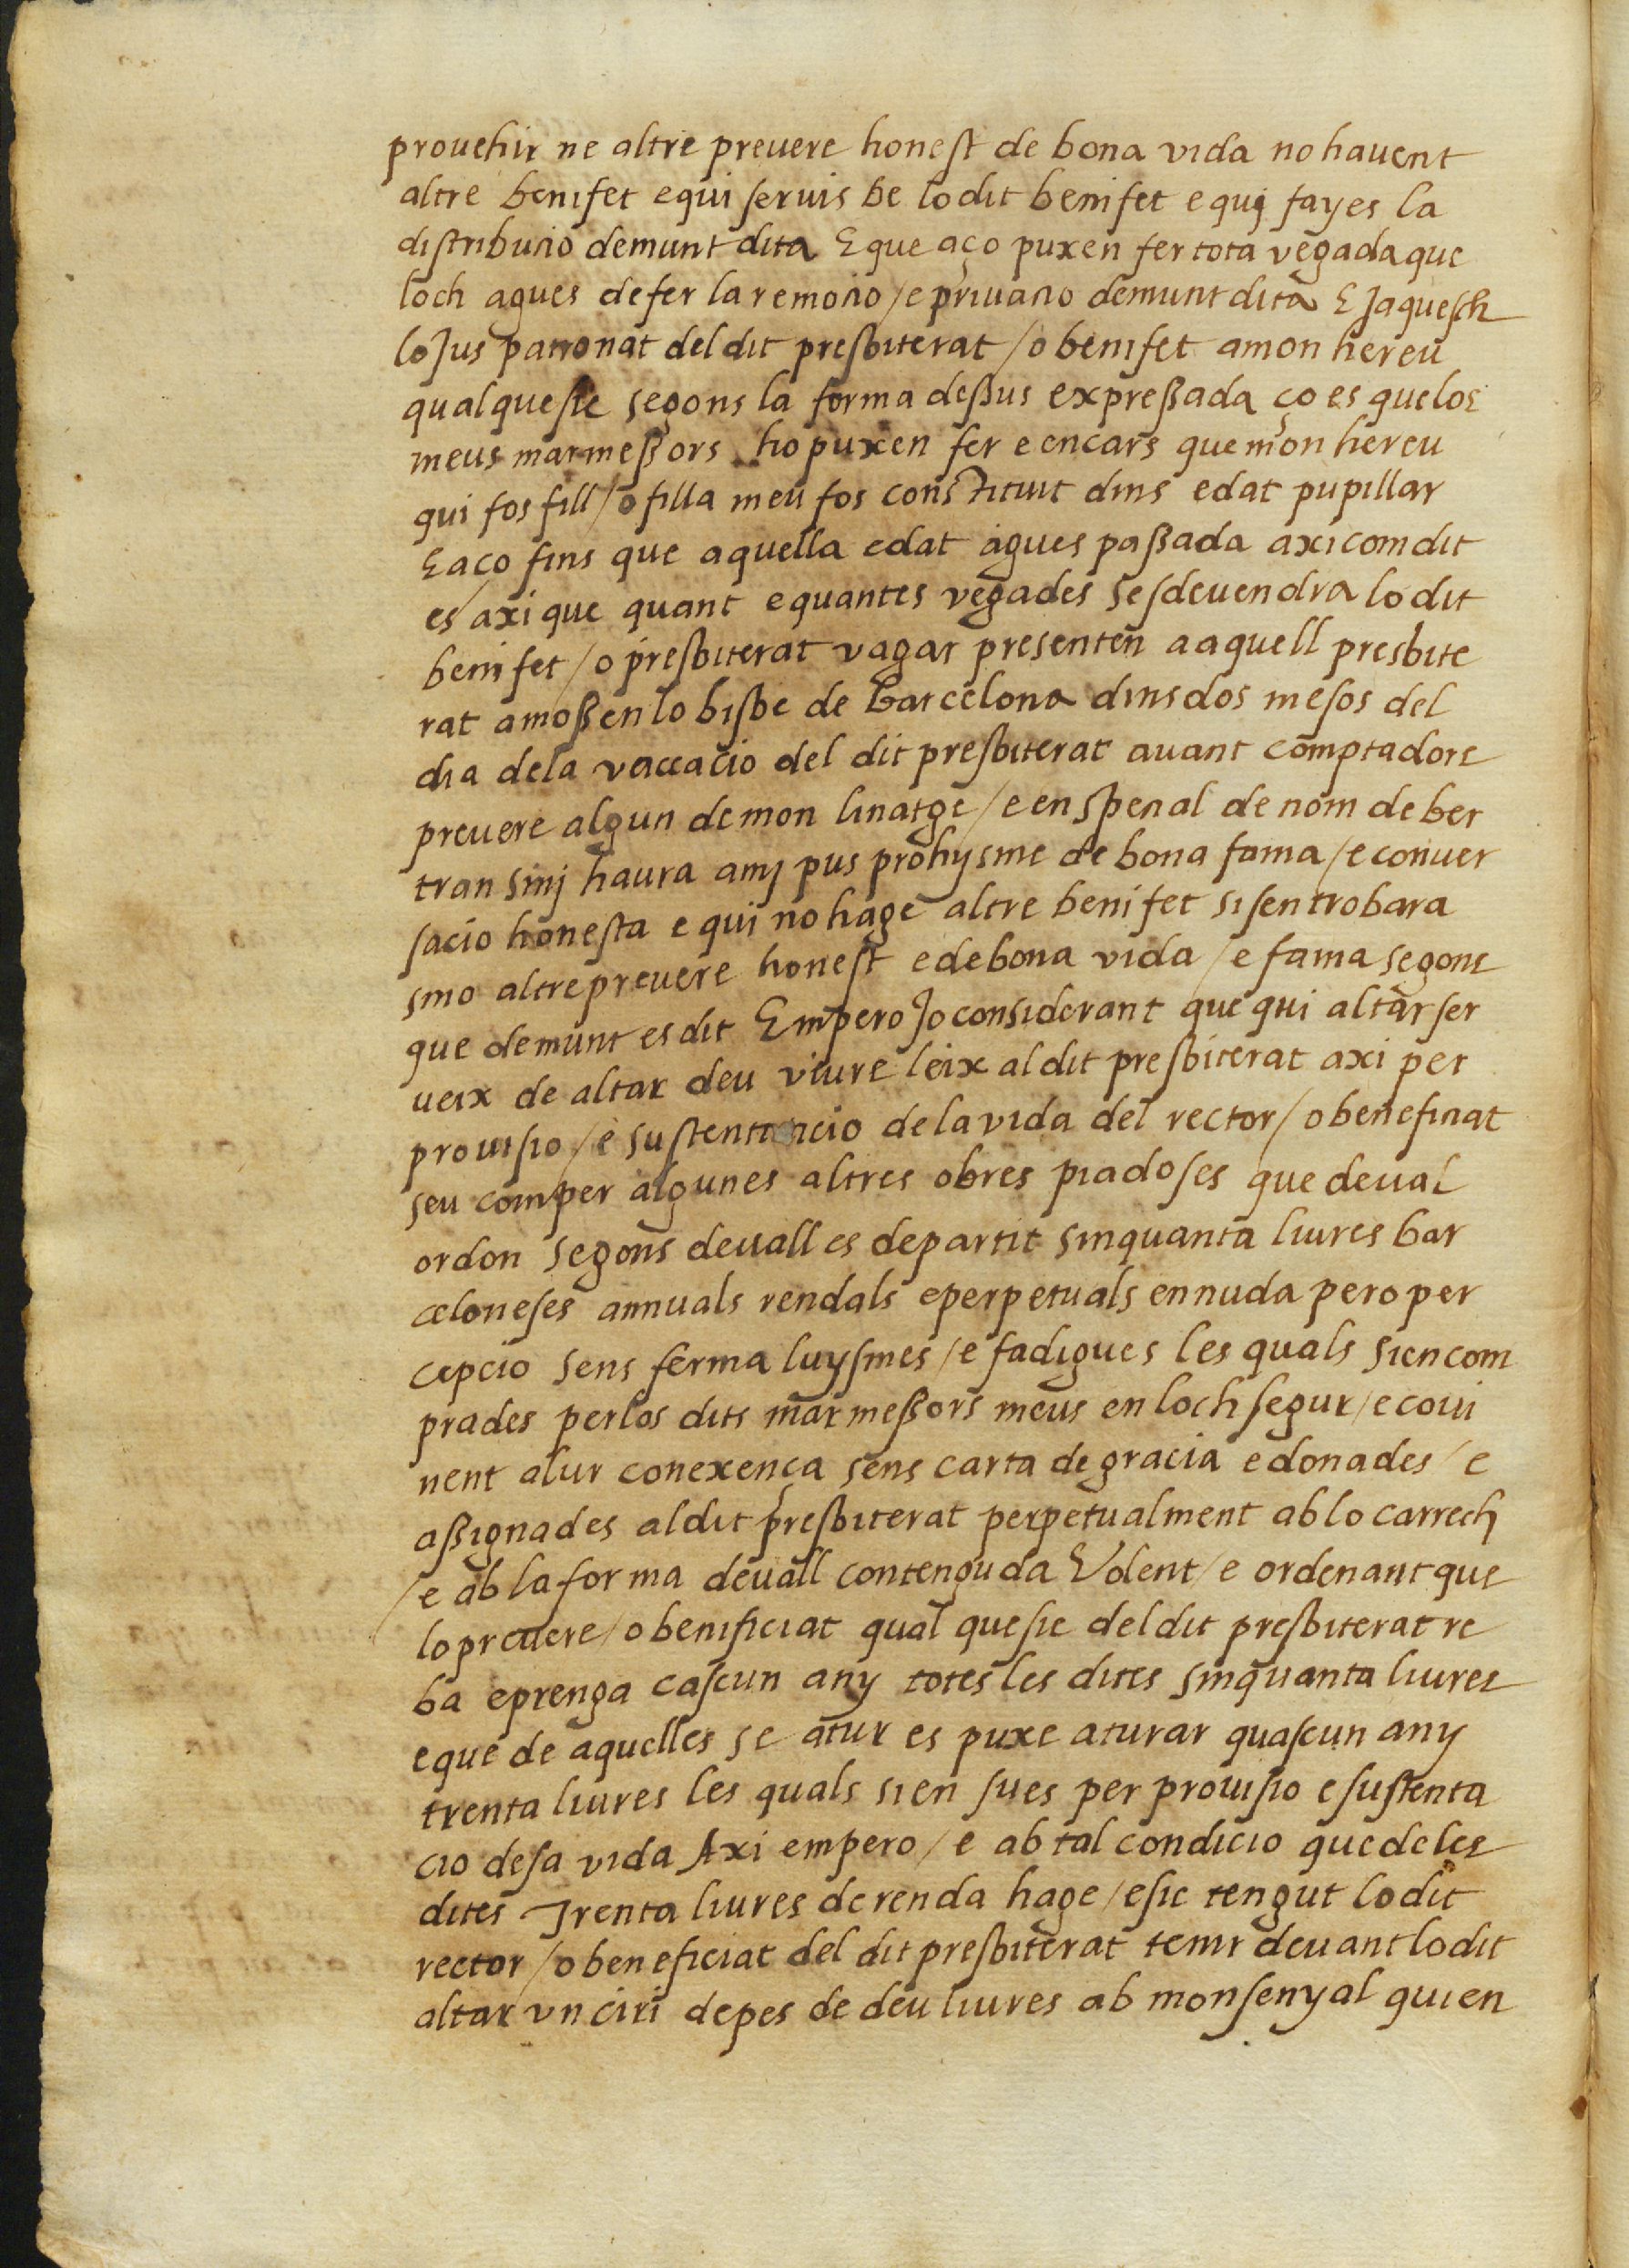 prouehir ne altre preuere honest de bona vida no hauent
altre benifet e qui seruis be lo dit benifet e qui fayes la
distribucio demunt dita E que aço puxen fer tota vegada que
loch agues de fer la remocio / e priuacio demunt dita E jaquesch
lo Jus patronat del dit presbiterat / o benifet a mon hereu
qualque sie segons la forma dessus expressada ço es que los
meus marmessors ho puxen fer e encars que mon hereu
qui fos fill / o filla meu fos constituit dins edat pupillar
E aço fins que aquella edat agues passada axi com dit
es axi que quant e quantes vegades se sdeuendra lo dit
benifet / o presbiterat vagar presenten a aquell presbite
rat a mossen lo bisbe de Barcelona dins dos mesos del
dia de la vaccacio del dit presbiterat auant comptadors
preuere algun de mon linatge / e en special de nom de ber
tran sinj haura amj pus prohysme de bona fama / e conuer
sacio honesta e qui no hage altre benifet si sen trobara
sino altre preuere honest e de bona vida / e fama segons
que demunt es dit Empero Jo considerant que qui altar ser
ueix de altar deu viure leix al dit presbiterat axi per
prouisio / e sustentacio de la vida del rector / o beneficiat
seu com per algunes altres obres piadoses que deual
ordon segons deuall es departit sinquanta liures bar
celoneses annuals rendals e perpetuals en nuda pero per
cepcio sens ferma luysmes / e fadigues les quals sien com
prades per los dits marmessors meus en loch segur / e coui
nent a lur conexença sens carta de gracia e donades / e
assignades al dit presbiterat perpetualment ab lo carrech
/ e ab la forma deuall contenguda Volent / e ordenant que
lo preuere / o benificiat qual que sie del dit presbiterat re
ba e prenga cascun any totes les dites sinquanta liures
e que de aquelles se atur es puxe aturar quascun any
trenta liures les quals sien sues per prouisio e sustenta
cio de sa vida Axi empero / e ab tal condicio que de les
dites Trenta liures de renda hage / e sie tengut lo dit
rector / o beneficiat del dit presbiterat tenir deuant lo dit
altar vn ciri de pes de deu liures ab mon senyal qui en